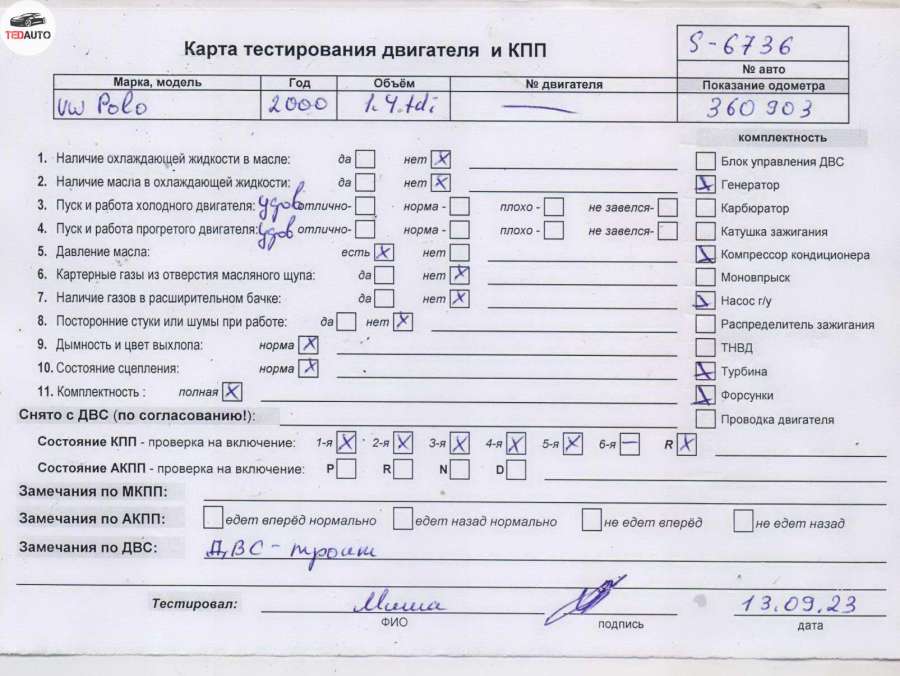 TEDAUTO
Карта тестирования двигателя и КПП
S-6736
№ авто
Марка, модель Год Объём № двигателя Показание одометра
VW Polo 2000 1.4.tdi — 360903
комплектность
1. Наличие охлаждающей жидкости в масле: да нет X
Блок управления ДВС
2. Наличие масла в охлаждающей жидкости: да нет X
Генератор
3. Пуск и работа холодного двигателя: удов отлично- норма - плохо - не завелся-
Карбюратор
4. Пуск и работа прогретого двигателя: удов отлично- норма - плохо - не завелся-
Катушка зажигания
5. Давление масла: есть X нет
Компрессор кондиционера
6. Картерные газы из отверстия масляного щупа: да нет X
Моновпрыск
7. Наличие газов в расширительном бачке: да нет X
Насос г/у
8. Посторонние стуки или шумы при работе: да нет X
Распределитель зажигания
9. Дымность и цвет выхлопа: норма X
ТНВД
10. Состояние сцепления: норма X
Турбина
11. Комплектность : полная X
Форсунки
Снято с ДВС (по согласованию!):
Проводка двигателя
Состояние КПП - проверка на включение: 1-я X 2-я X 3-я X 4-я X 5-я X 6-я — R X
Состояние АКПП - проверка на включение: P R N D
Замечания по МКПП:
Замечания по АКПП: едет вперёд нормально едет назад нормально не едет вперёд не едет назад
Замечания по ДВС: ДВС - троит
Тестировал: Миша 13.09.23
ФИО подпись дата